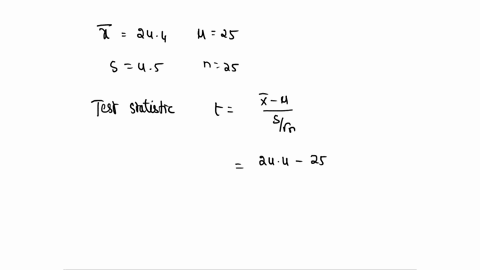 x̄ = 24.4 μ = 25
s = 4.5 n = 25
Test statistic t = x̄ - μ / s/√n
= 24.4 - 25